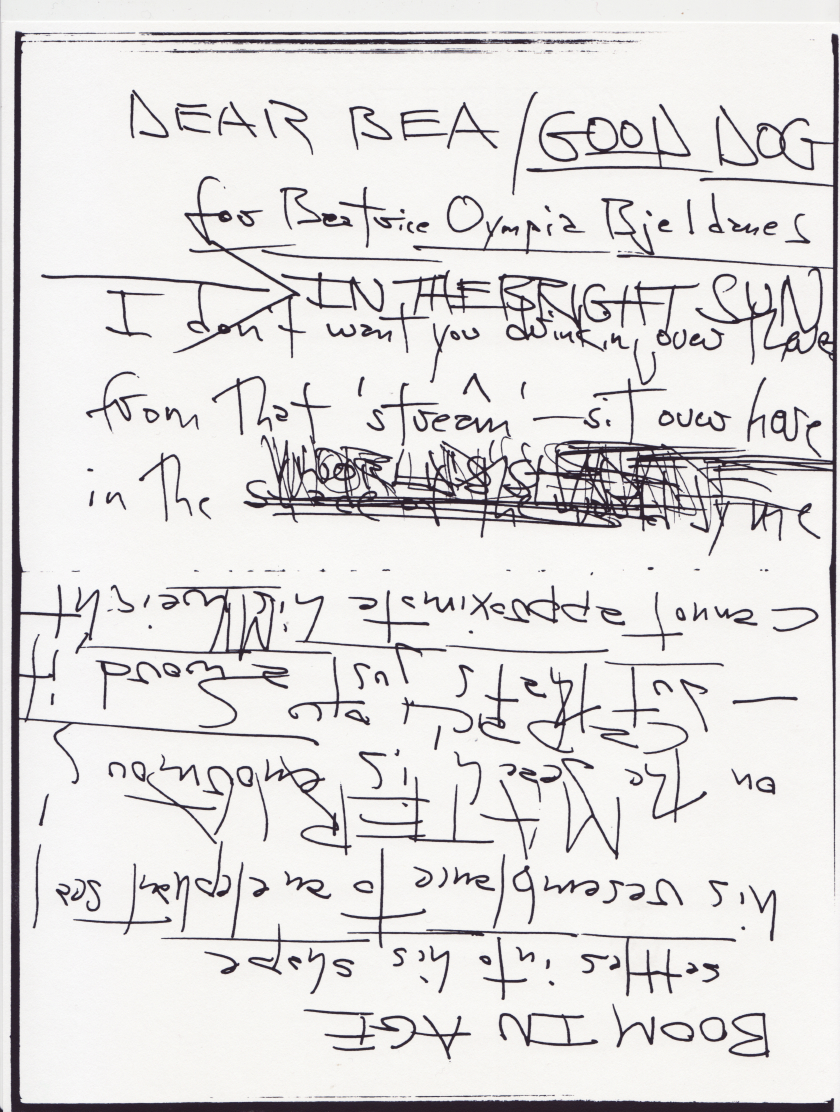 DEAR BEA / GOOD DOG
for Beatrice Olympia Bjeldanes
IN THE BRIGHT SUN
I don't want you drinking over there
from that 'stream' – sit over here
in the by me
BOOM IN AGE
settles into his shape
his resemblance to an elephant seal
on the beach is enormous
— but that's just a word it
cannot approximate his weight